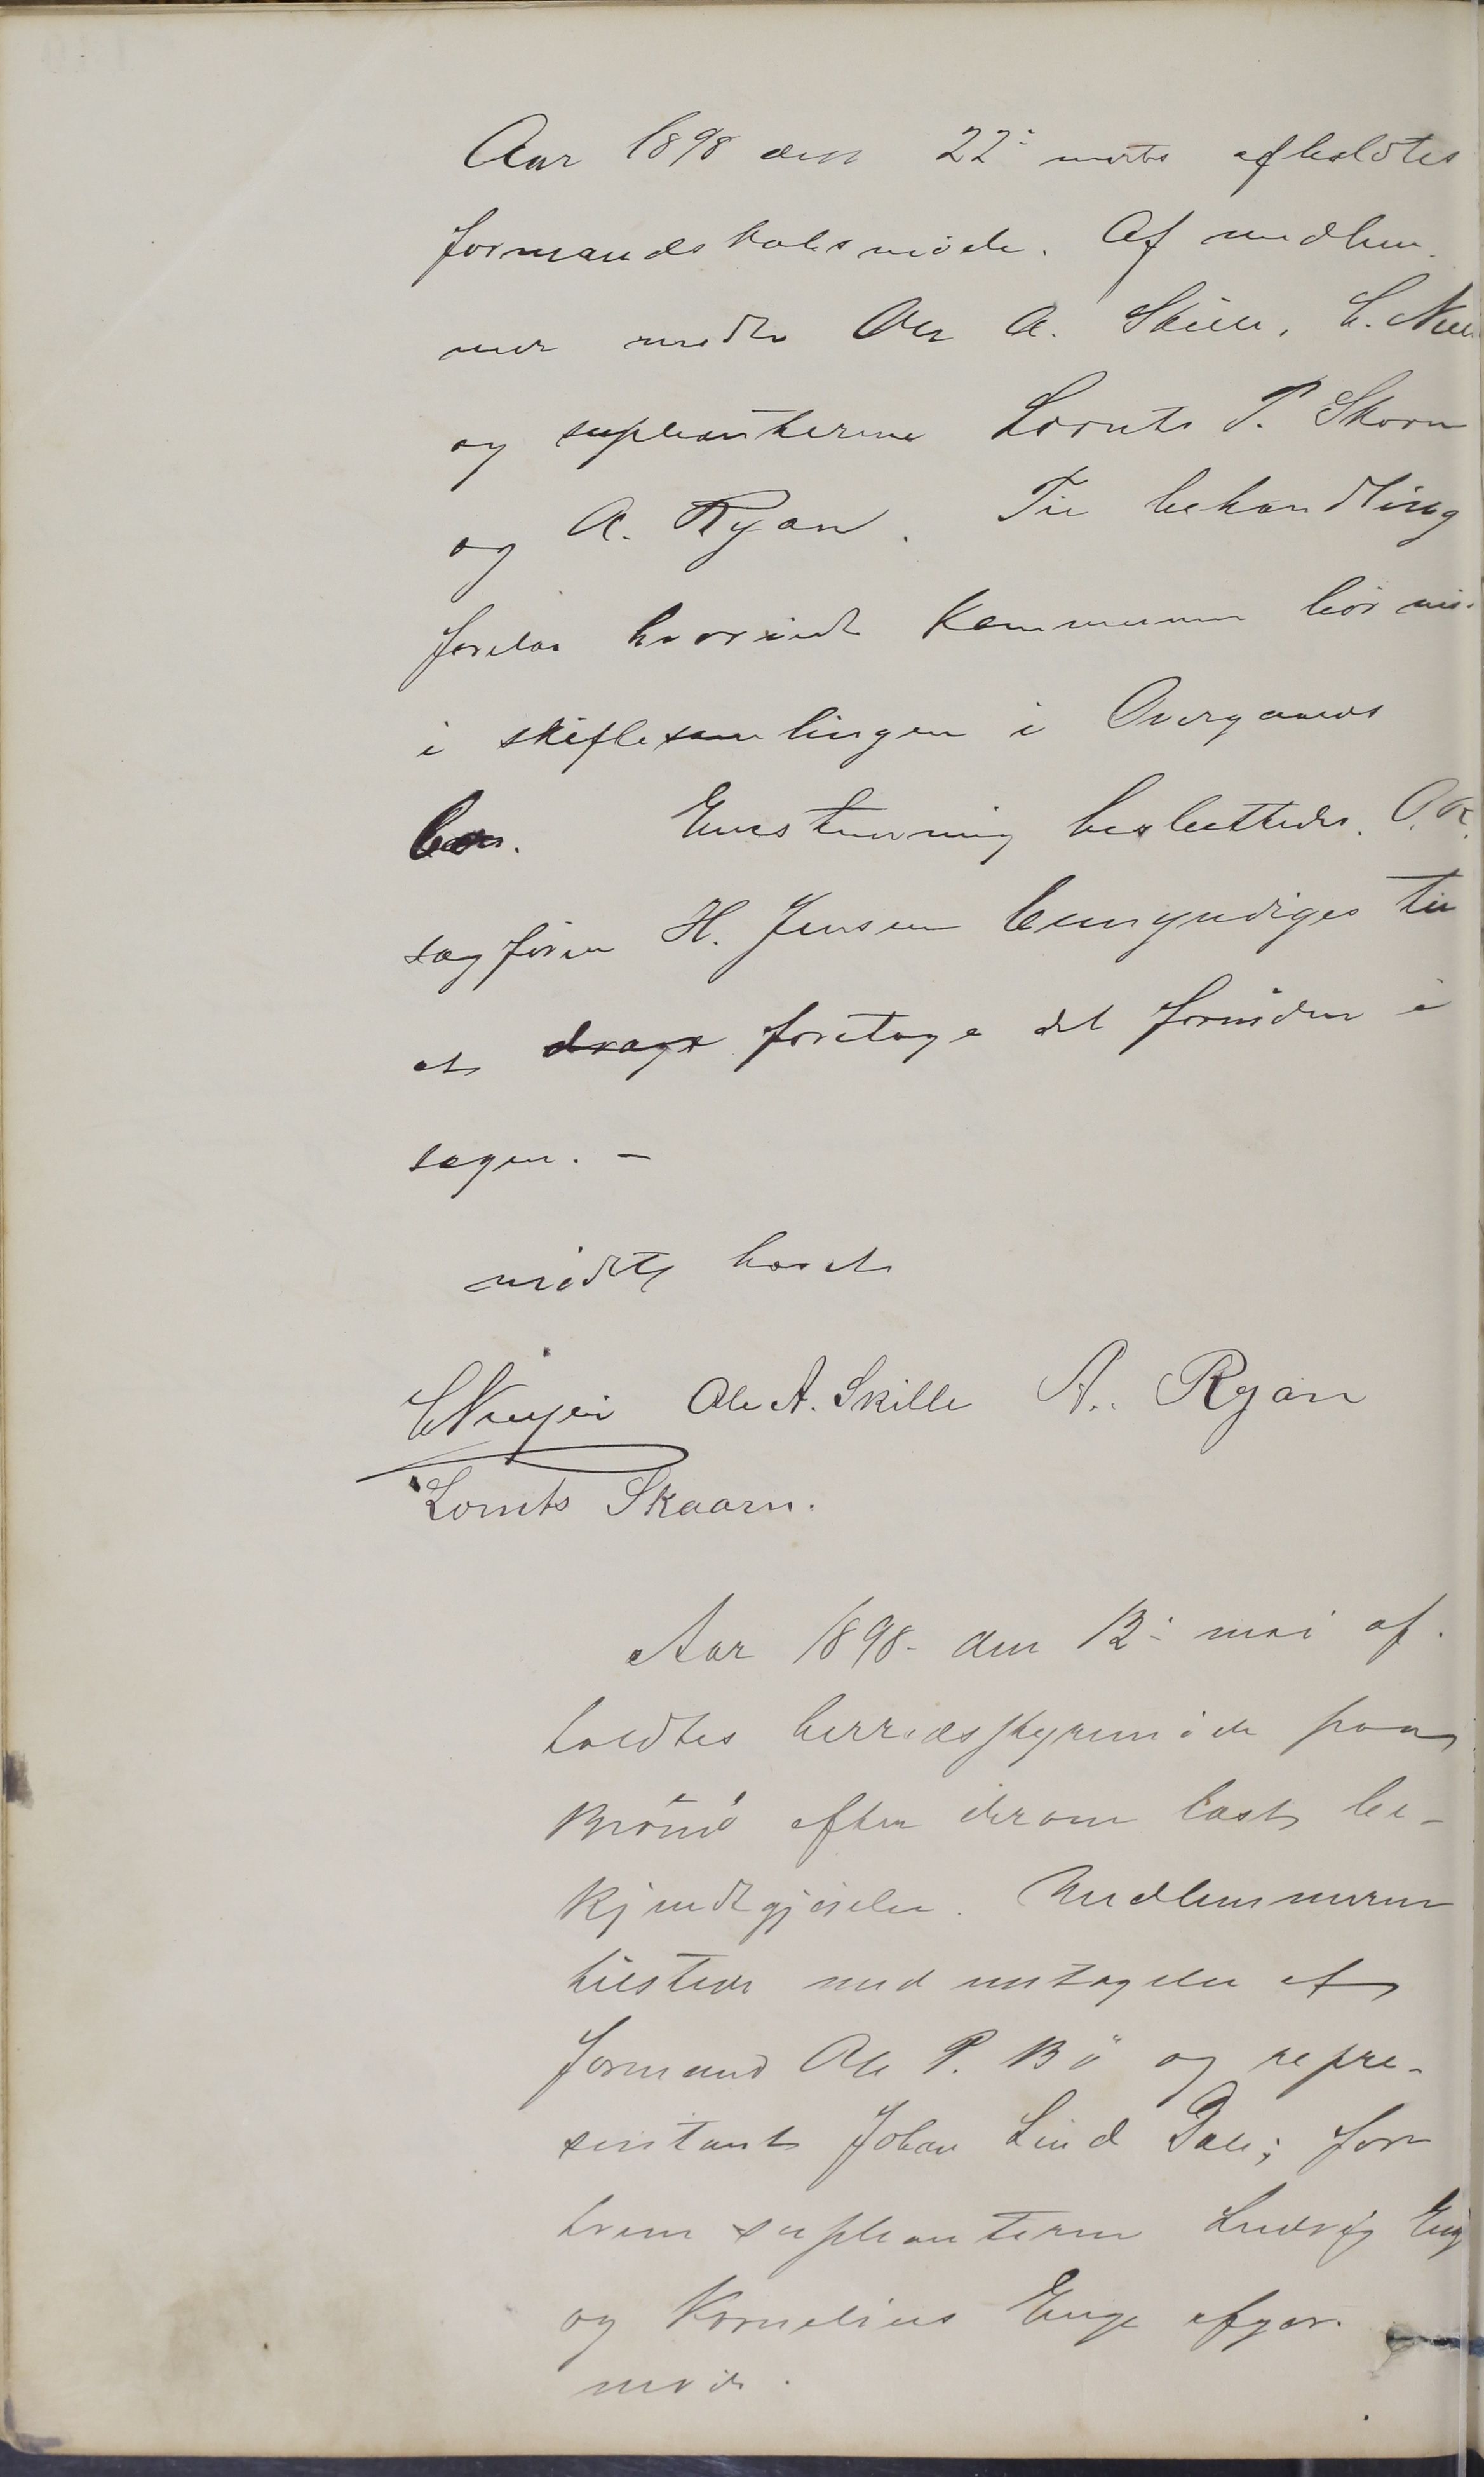 Aar 1898 den 22: marts afholdtes
formandskabsmöde. Af medlem-
mer mödte Ole A. Skille, C.
og suplianterne Lornts P. Skorn
og A. Ryan. Til behandling
forelaa hvorvidt Kommunen bör
i skiftesamlingen i Overgaards
bo. Enstemmig besluttedes. O.R.
sagförer H. Jensen bemyndiges til
at drage foretage det fornödne i
sagen. -
mödet hævet
Ole A. Skille A. Ryan
Lornts Skaarn.
Aar 1898- den 12: mai af-
holdtes herredsstyremöde paa
Brönö efter derom læst be-
kjendtgjörelse. Medlemmerne
tilstede med untagelse af
formand Ole P. Bö og repre-
sentant Johan Lind Dale; for
hvem suplianterne Ludvig
og Kornelius Enge afgav
möde.